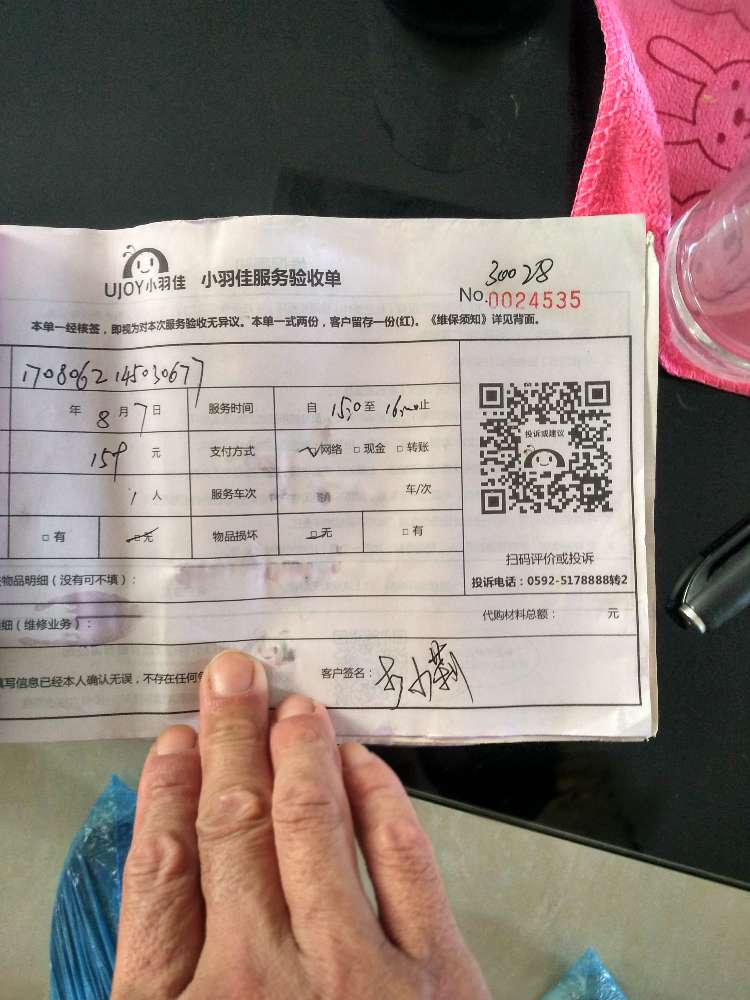 30028
UJOY小羽佳 小羽佳服务验收单
No.0024535
本单一经核签，即视为对本次服务验收无异议。本单一式两份，客户留存一份(红)。《维保须知》详见背面。
1708062145030677
年 8 月 7 日 服务时间 自 15:0 至 16:00 止
159 元 支付方式 网络 □ 现金 □ 转账
投诉或建议
1 人 服务车次 车/次
□ 有 □ 无 物品损坏 □ 无 □ 有
扫码评价或投诉
物品明细（没有可不填）：
投诉电话：0592-5178888转2
细（维修业务）： 代购材料总额： 元
填写信息已经本人确认无误，不存在任何 客户签名：